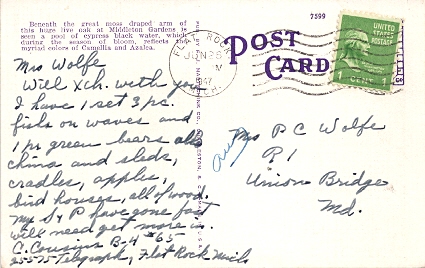 Beneath the great moss draped arm of
this huge live oak at Middleton Gardens is
seen a pool of cypress black water, which
during the season of bloom, reflects the
myriad colors of Camellia and Azalea.
7599
POST
CARD
FLAT ROCK
JUN 28
MICH.
UNITED STATES
POSTAGE
1 CENT 1
Mrs Wolfe
Will Xch. with you
I have 1 set 3 pc.
fish on waves and
1 pr green bears also
china and sleds,
cradles, apples,
bird houses, all of wood.
my S & P have gone fast
will need get more in.
C. Cousins B-4 #65
25575 Telegraph, Flat Rock Mich
Mrs P C Wolfe
R 1
Union Bridge
Md.